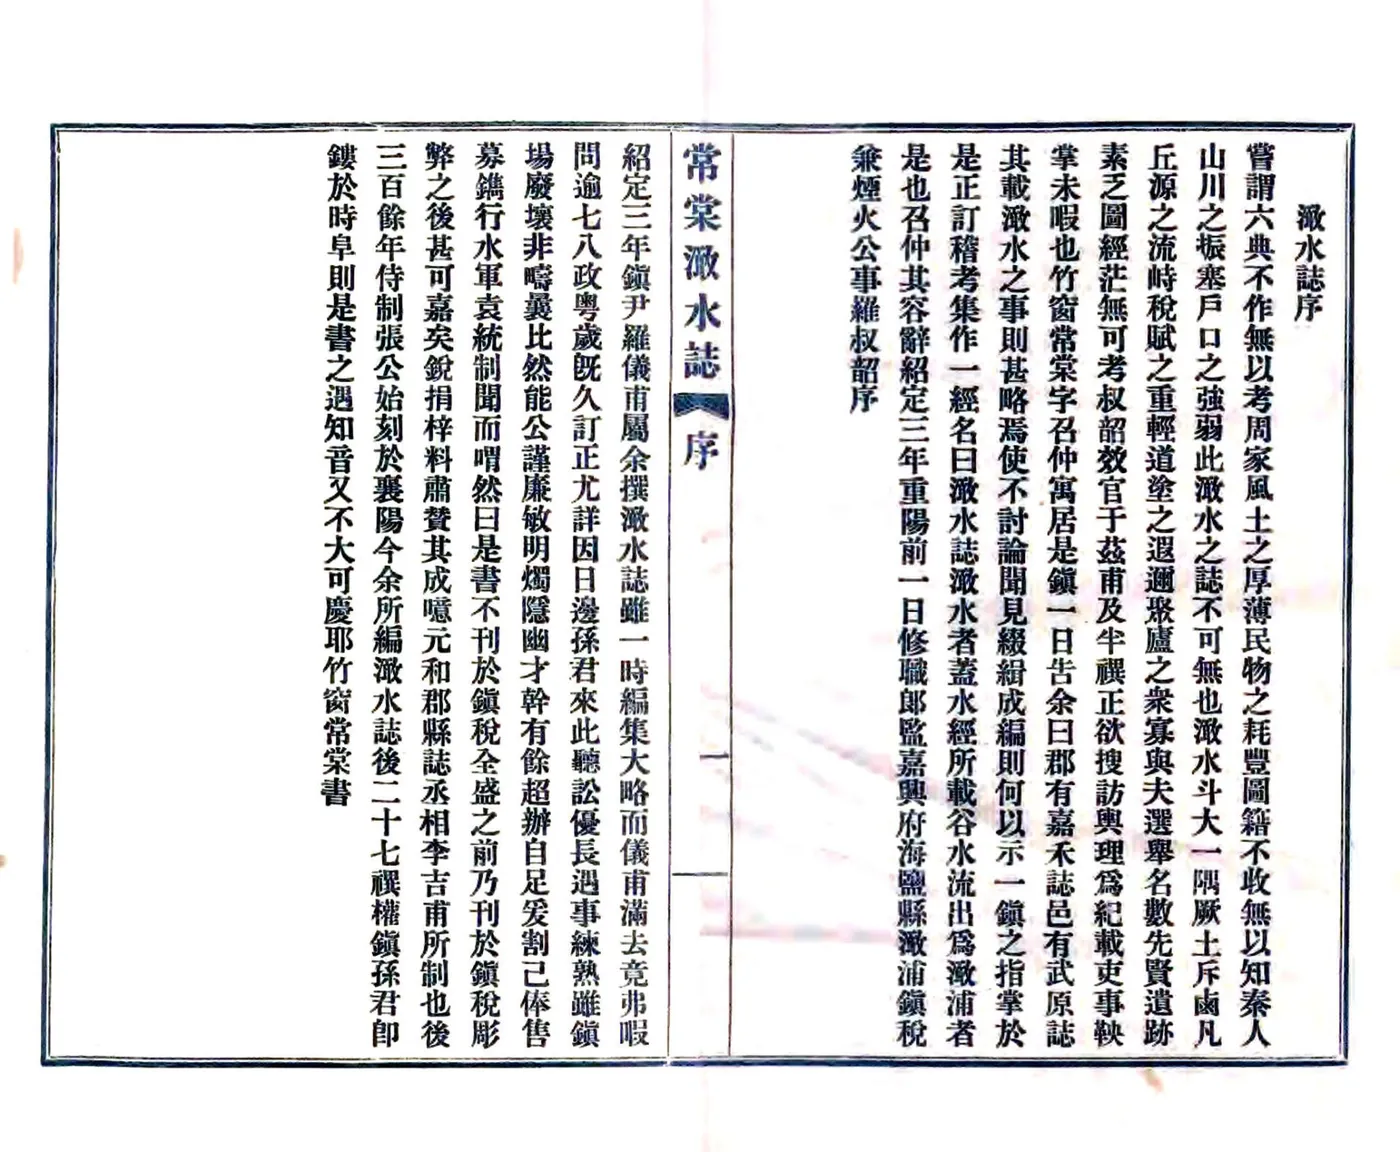 澉水誌序
嘗謂六典不作無以考周家風土之厚薄民物之耗豐圖籍不收無以知秦人
山川之振塞戶口之強弱此澉水之誌不可無也澉水斗大一隅厥土斥鹵凡
丘源之流峙稅賦之重輕道塗之遐邇聚廬之衆寡與夫選舉名數先賢遺跡
素乏圖經茫無可考叔韶效官于茲甫及半禩正欲搜訪輿理爲紀載吏事鞅
掌未暇也竹窗常棠字召仲寓居是鎭一日告余曰郡有嘉禾誌邑有武原誌
其載澉水之事則甚略焉使不討論聞見綴緝成編則何以示一鎭之指掌於
是正訂稽考集作一經名曰澉水誌澉水者蓋水經所載谷水流出爲澉浦者
是也召仲其容辭紹定三年重陽前一日修職郎監嘉興府海鹽縣澉浦鎭稅
兼煙火公事羅叔韶序
常棠澉水誌 序
一
紹定三年鎭尹羅儀甫屬余撰澉水誌雖一時編集大略而儀甫滿去竟弗暇
問逾七八政粤歲旣久訂正尤詳因日邊孫君來此聽訟優長遇事練熟雖鎭
場廢壞非疇曩比然能公謹廉敏明燭隱幽才幹有餘超辦自足爰割己俸售
募鐫行水軍袁統制聞而喟然曰是書不刊於鎭稅全盛之前乃刊於鎭稅彫
弊之後甚可嘉矣銳捐梓料肅贊其成噫元和郡縣誌丞相李吉甫所制也後
三百餘年侍制張公始刻於襄陽今余所編澉水誌後二十七禩權鎭孫君卽
鏤於時阜則是書之遇知音又不大可慶耶竹窗常棠書